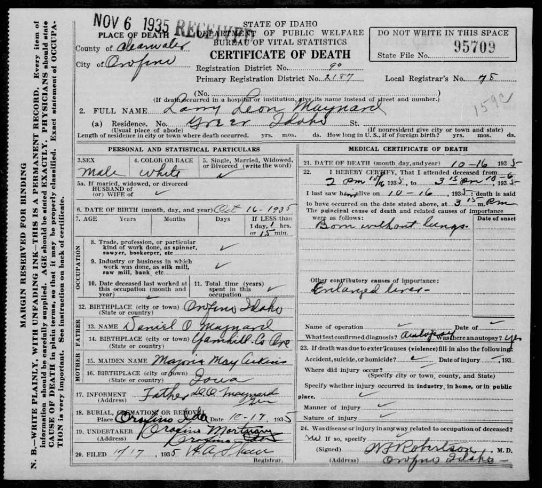 NOV 6 1935 RECEIVED
STATE OF IDAHO
DEPARTMENT OF PUBLIC WELFARE
BUREAU OF VITAL STATISTICS
CERTIFICATE OF DEATH
DO NOT WRITE IN THIS SPACE
State File No. 95709
PLACE OF DEATH
County of Clearwater
City of Orofino
Registration District No. 90
Primary Registration District No. 2187
Local Registrar's No. 75
(If death occurred in a hospital or institution, give its name instead of street and number.)
2. FULL NAME Larry Leon Maynard
(a) Residence. No. Greer Idaho St.
(Usual place of abode) (If nonresident give city or town and state)
Length of residence in city or town where death occurred. yrs. mos. ds. How long in U. S., if of foreign birth? yrs. mos. ds.
159c
PERSONAL AND STATISTICAL PARTICULARS
3. SEX Male
4. COLOR OR RACE White
5. Single, Married, Widowed, or Divorced (write the word)
5a. If married, widowed, or divorced
HUSBAND of
(or) WIFE of
6. DATE OF BIRTH (month, day, and year) Oct 16-1935
7. AGE Years Months Days If LESS than
1 day, 1 hrs.
or 15 min.
OCCUPATION
8. Trade, profession, or particular
kind of work done, as spinner,
sawyer, bookkeeper, etc
9. Industry or business in which
work was done, as silk mill,
saw mill, bank, etc.
10. Date deceased last worked at
this occupation (month and year)
11. Total time (years)
spent in this occupation
12. BIRTHPLACE (city or town) Orofino Idaho
(State or country)
13. NAME Daniel O Maynard
14. BIRTHPLACE (city or town) Yamhill Co Ore
(State or country)
15. MAIDEN NAME
16. BIRTHPLACE (city or town)
(State or country) Iowa
17. INFORMANT Father D.O. Maynard
(Address)
18. BURIAL, CREMATION OR REMOVAL
Place Orofino Ida Date 10-17, 1935
19. UNDERTAKER Orofino Mortuary
(Address) Orofino
20. FILED 10/17, 1935 H.A. Shaw
Registrar.
MEDICAL CERTIFICATE OF DEATH
21. DATE OF DEATH (month, day, and year) 10-16 1935
22. I HEREBY CERTIFY, That I attended deceased from
2 am 10/16 1935, to 3 15 am 1935
I last saw h alive on 10-16, 1935; death is said
to have occurred on the date stated above, at 3 15 am
The principal cause of death and related causes of importance
were as follows: Date of onset
Born without lungs.
Other contributory causes of importance:
Enlarged liver-
Name of operation
What test confirmed diagnosis? Autopsy Was there an autopsy? yes
23. If death was due to external causes (violence) fill in also the following:
Accident, suicide, or homicide? Date of injury , 193
Where did injury occur?
(Specify city or town, county, and State)
Specify whether injury occurred in industry, in home, or in public
place.
Manner of injury
Nature of injury
24. Was disease or injury in any way related to occupation of deceased?
No If so, specify
(Signed) Robertson M. D.
(Address) Orofino Idaho
MARGIN RESERVED FOR BINDING
N. B.—WRITE PLAINLY, WITH UNFADING INK—THIS IS A PERMANENT RECORD. Every item of
information should be carefully supplied. AGE should be stated EXACTLY. PHYSICIANS should state
CAUSE OF DEATH in plain terms, so that it may be properly classified. Exact statement of OCCUPA-
TION is very important. See instruction on back of certificate.